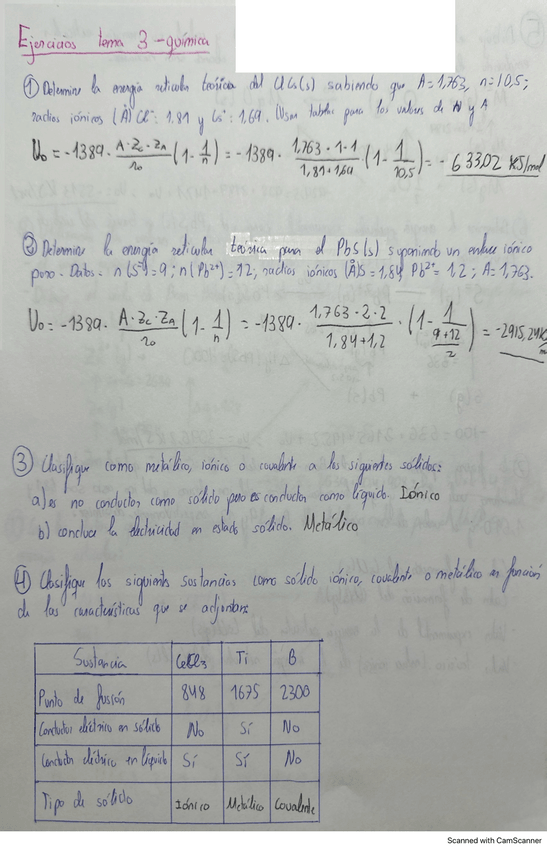 Ejercicios tema 3 - química
① Determine la energía reticular teórica del ClCs(s) sabiendo que A=1,763, n=10,5;
radios iónicos (Å) Cl⁻: 1,81 y Cs⁺: 1,69. (Usar tablas para los valores de N y A
U₀ = -1389 · A·Zc·ZA / r₀ (1 - 1/n) = -1389 · 1,763·1·1 / 1,81+1,69 (1 - 1/10,5) = - 633,02 KJ/mol
② Determine la energía reticular teórica para el PbS(s) suponiendo un enlace iónico
puro. Datos. n(S²⁻)=9; n(Pb²⁺)=12, radios iónicos (Å) S=1,84 Pb²⁺=1,2; A=1,763.
U₀ = -1389 · A·Zc·ZA / r₀ (1 - 1/n) = -1389 · 1,763·2·2 / 1,84+1,2 · (1 - 1 / (9+12 / 2)) = -2915,24
③ Clasifique como metálico, iónico o covalente a los siguientes sólidos:
a) es no conductor como sólido pero es conductor como líquido. Iónico
b) conduce la electricidad en estado sólido. Metálico
④ Clasifique los siguientes sustancias como sólido iónico, covalente o metálico en función
de las características que se adjuntan:
Sustancia CeCl₃ Ti B
Punto de fusión 848 1675 2300
Conductor eléctrico en sólido No Sí No
Conductor eléctrico en líquido Sí Sí No
Tipo de sólido Iónico Metálico Covalente
Scanned with CamScanner